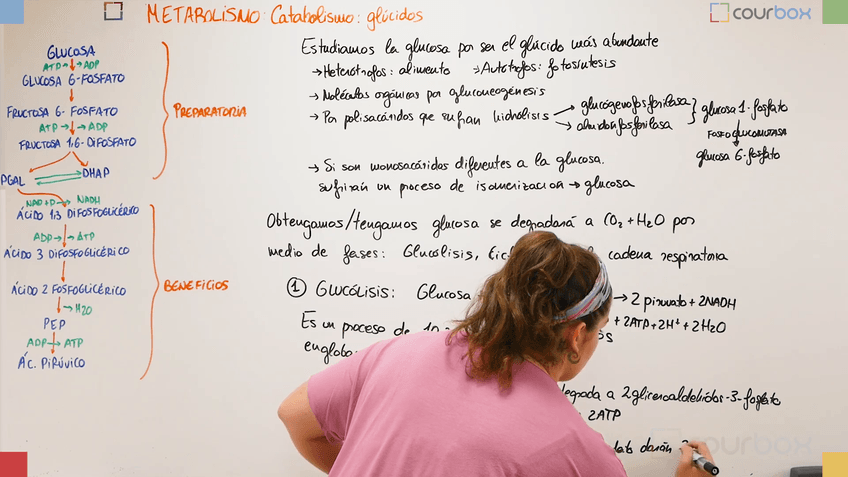 METABOLISMO: Catabolismo: glúcidos
courbox
GLUCOSA
ATP → ADP
GLUCOSA 6-FOSFATO
FRUCTOSA 6-FOSFATO
ATP → ADP
FRUCTOSA 1,6-DIFOSFATO
PGAL DHAP
NAD+P → NADH
ÁCIDO 1,3 DIFOSFOGLICÉRICO
ADP → ATP
ÁCIDO 3 DIFOSFOGLICÉRICO
ÁCIDO 2 FOSFOGLICÉRICO
→ H2O
PEP
ADP → ATP
ÁC. PIRÚVICO
PREPARATORIA
BENEFICIOS
Estudiamos la glucosa por ser el glúcido más abundante
→ Heterótrofos: alimento → Autótrofos: fotosíntesis
→ Moléculas orgánicas por gluconeogénesis
→ Por polisacáridos que sufran hidrólisis → glucógenofosforilasa
→ almidónfosforilasa
glucosa 1-fosfato
FOSFOGLUCOMUTASA
glucosa 6-fosfato
→ Si son monosacáridos diferentes a la glucosa.
sufrirán un proceso de isomerización → glucosa
Obtengamos/tengamos glucosa se degradará a CO2 + H2O por
medio de fases: Glucólisis, cadena respiratoria
① GLUCÓLISIS: Glucosa → 2 piruvato + 2NADH
+ 2ATP + 2H+ + 2H2O
Es un proceso de
engloba
degrada a 2 gliceraldehídos-3-fosfato
2ATP
darán
courbox